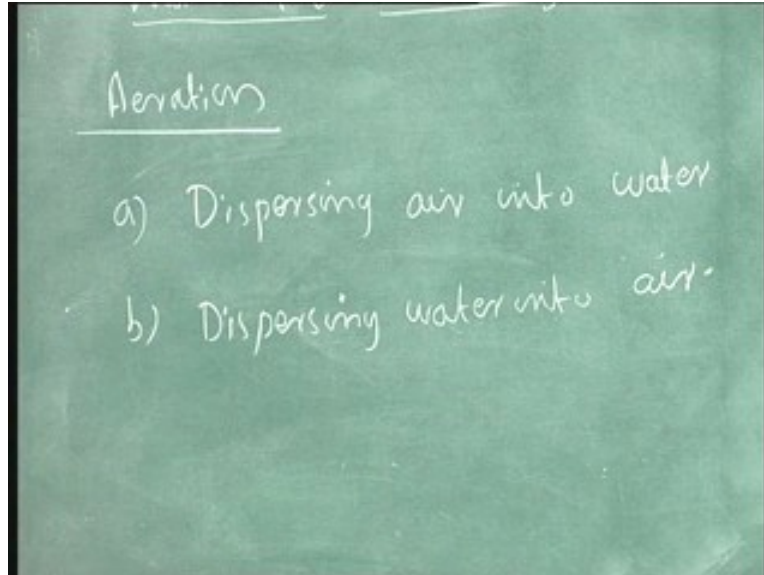 Aeration
a) Dispersing air into water
b) Dispersing water into air.